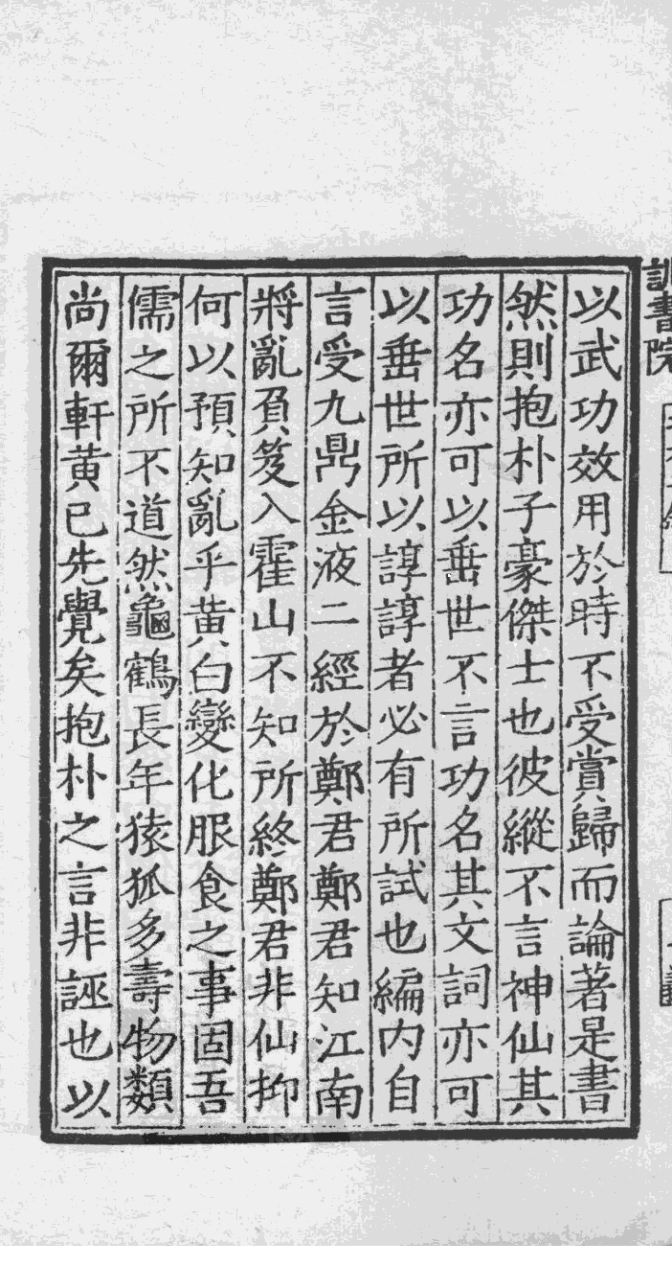 以武功效用於時不受賞歸而論著是書
然則抱朴子豪傑士也彼縱不言神仙其
功名亦可以垂世不言功名其文詞亦可
以垂世所以諄諄者必有所試也編内自
言受九鼎金液二經於鄭君鄭君知江南
將亂負笈入霍山不知所終鄭君非仙抑
何以預知亂乎黄白變化服食之事固吾
儒之所不道然龜鶴長年猿狐多壽物類
尚爾軒黄已先覺矣抱朴之言非誣也以